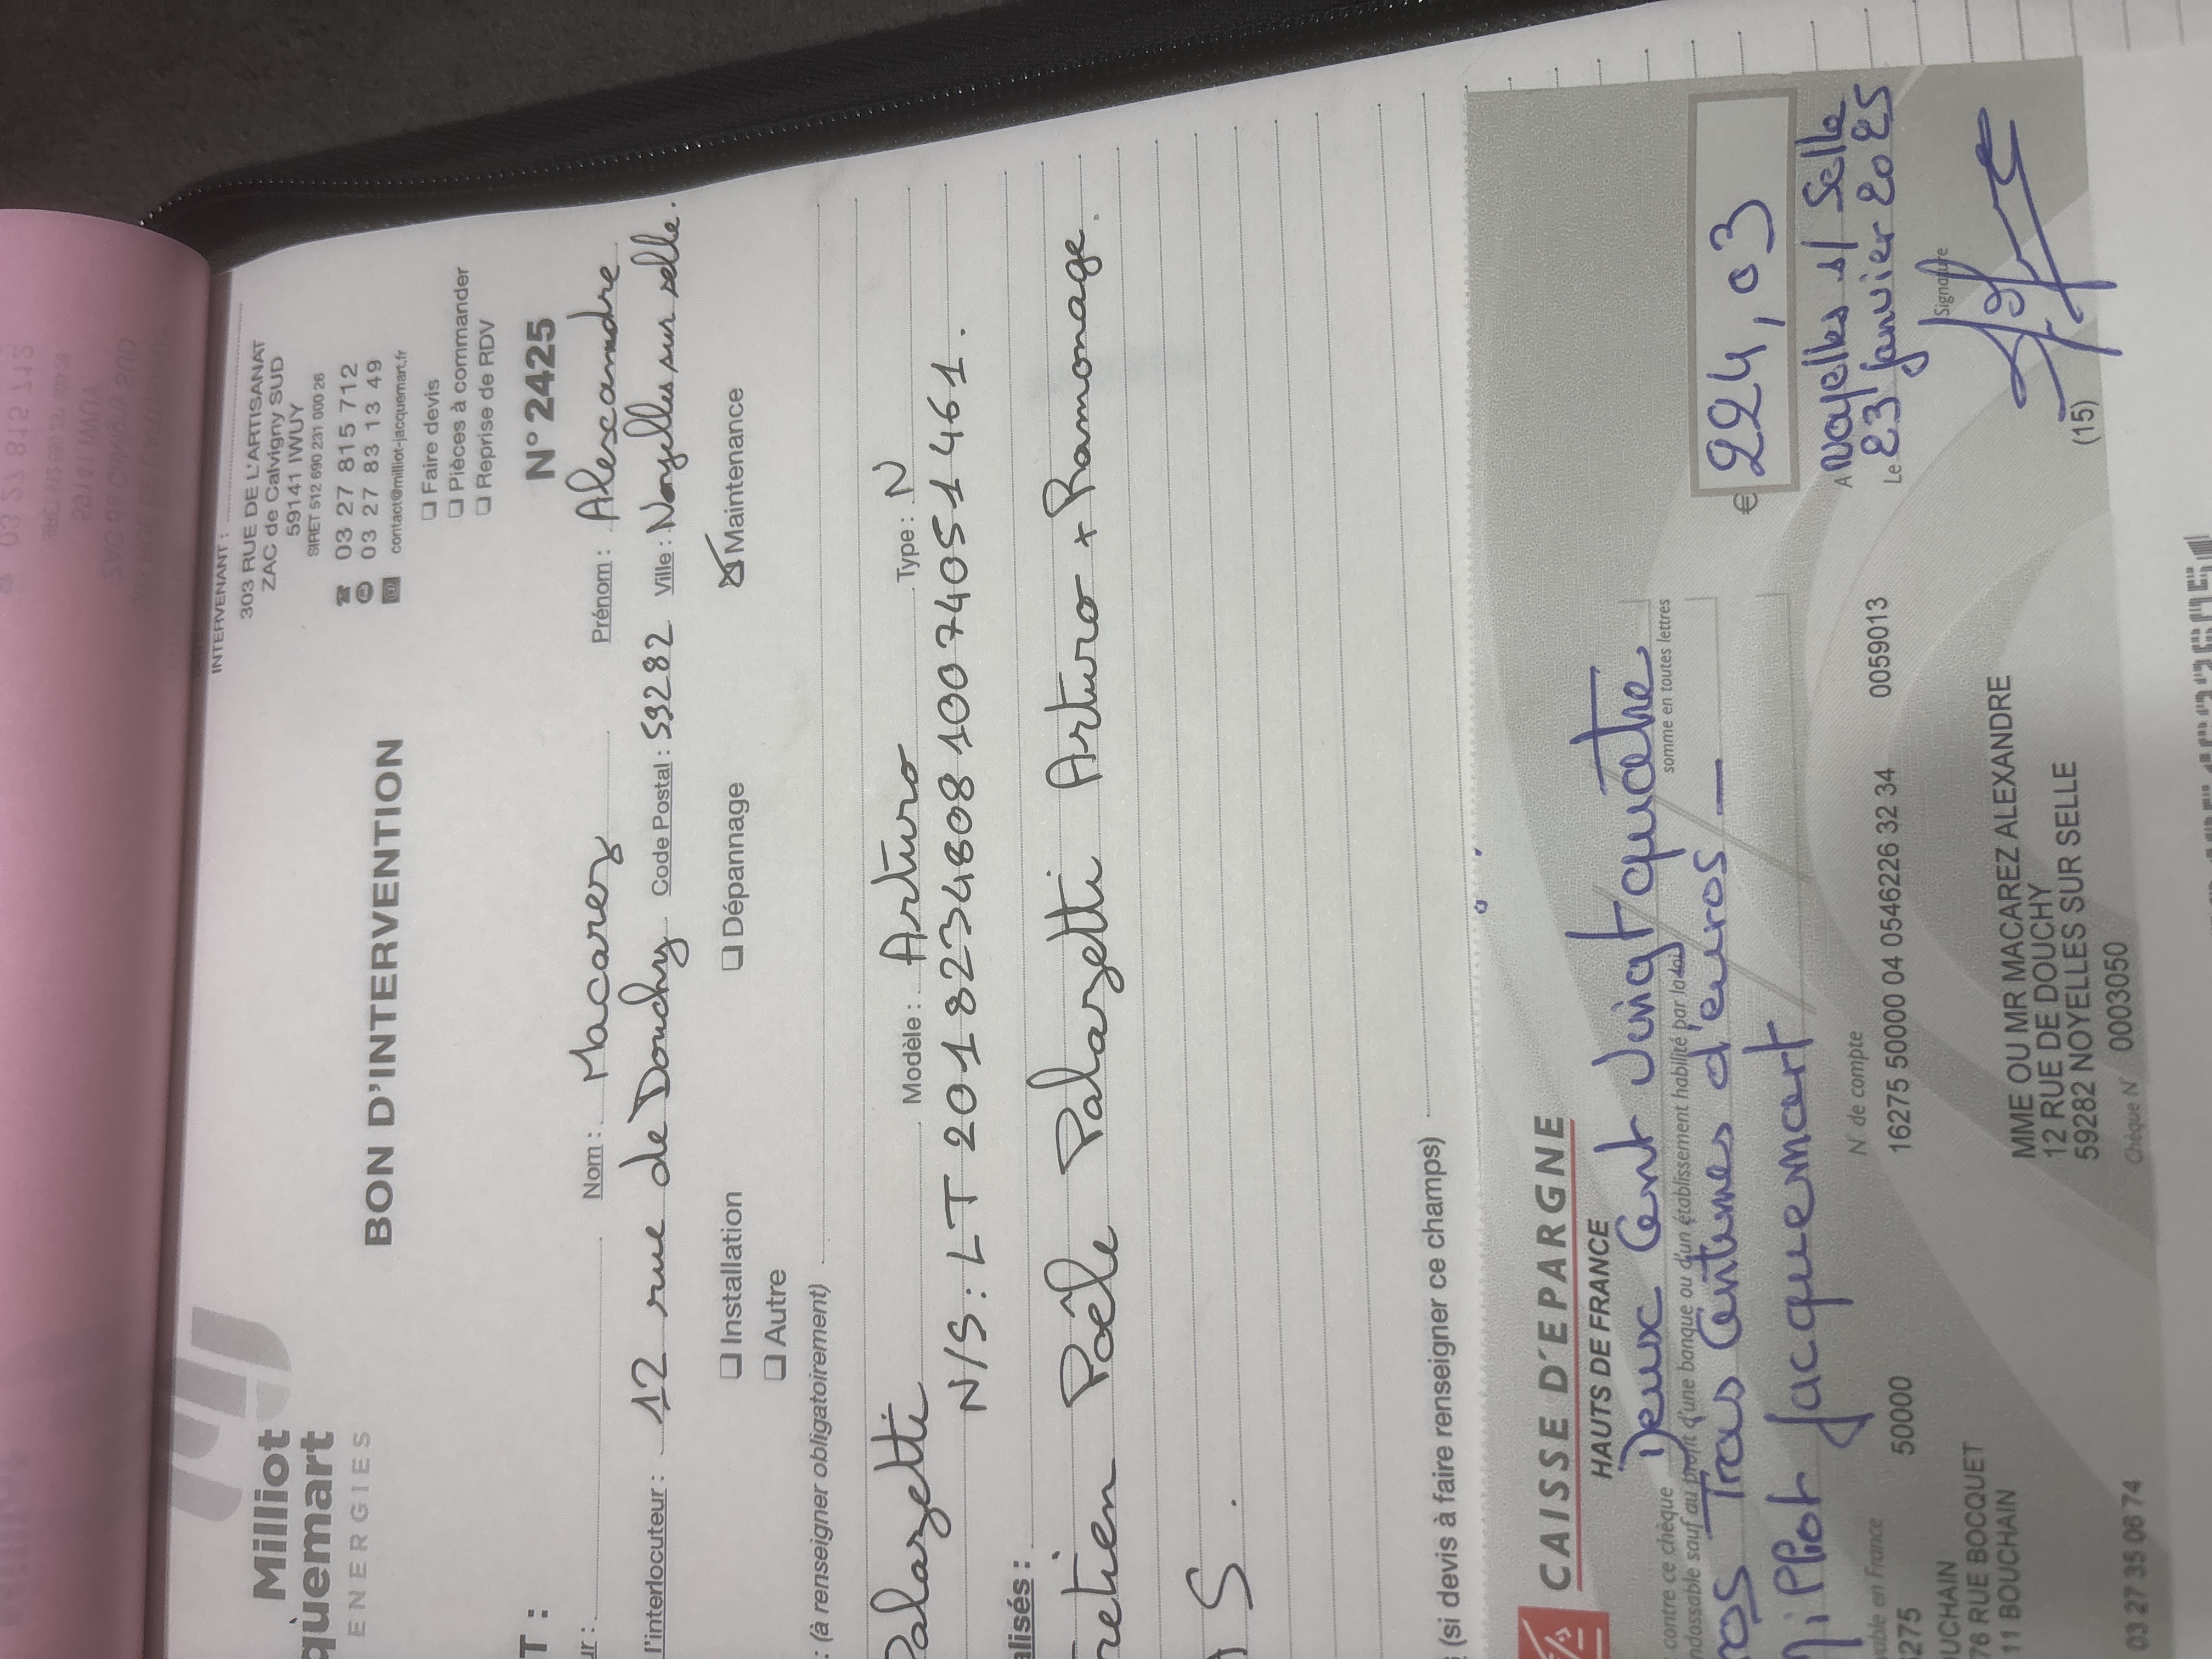 Milliot
quemart
ENERGIES
BON D'INTERVENTION
INTERVENANT :
303 RUE DE L'ARTISANAT
ZAC de Calvigny SUD
59141 IWUY
SIRET 512 690 231 000 26
03 27 815 712
03 27 83 13 49
contact@milliot-jacquemart.fr
Faire devis
Pièces à commander
Reprise de RDV
N° 2425
T :
ur : Nom : Macarez Prénom : Alexandre
l'interlocuteur : 12 rue de Douchy Code Postal : 59282 Ville : Noyelles sur selle.
Installation Dépannage Maintenance
Autre
: (à renseigner obligatoirement)
Palazetti Modèle : Arturo Type : N
N/S : LT 2018234808100740514 61.
alisés :
retien Poêle Palazetti Arturo + Ramonage.
S.
(si devis à faire renseigner ce champs)
CAISSE D'EPARGNE
HAUTS DE FRANCE
contre ce chèque Deux Cent Vingt quatre
somme en toutes lettres
ndossable sauf au profit d'une banque ou d'un établissement habilité par la loi
ros Trois Centimes d'euros
€ 224,03
Milliot Jacquemart
A Noyelles s/ Selle
Le 23 Janvier 2025
Signature
yable en France
N° de compte
6275 50000 16275 50000 04 05462263234 0059013
UCHAIN
76 RUE BOCQUET
11 BOUCHAIN
MME OU MR MACAREZ ALEXANDRE
12 RUE DE DOUCHY
59282 NOYELLES SUR SELLE
03 27 35 06 74
Chèque N° 0003050
(15)